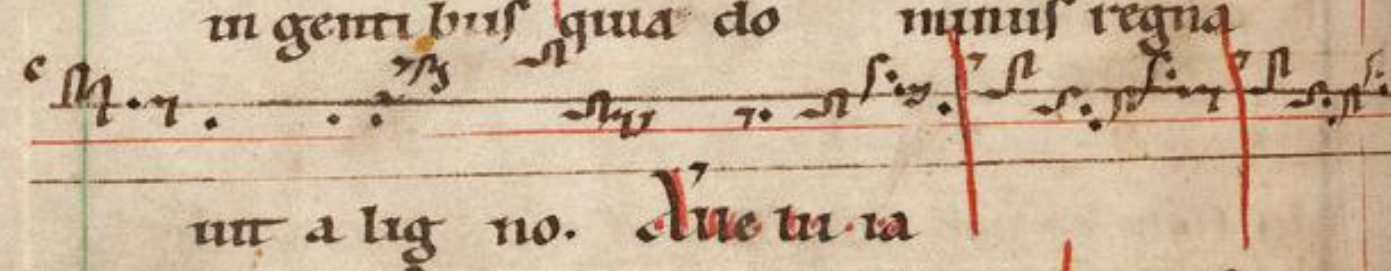 in genti bus quia do minus regna
c
uit a lig no. Alle lu ia